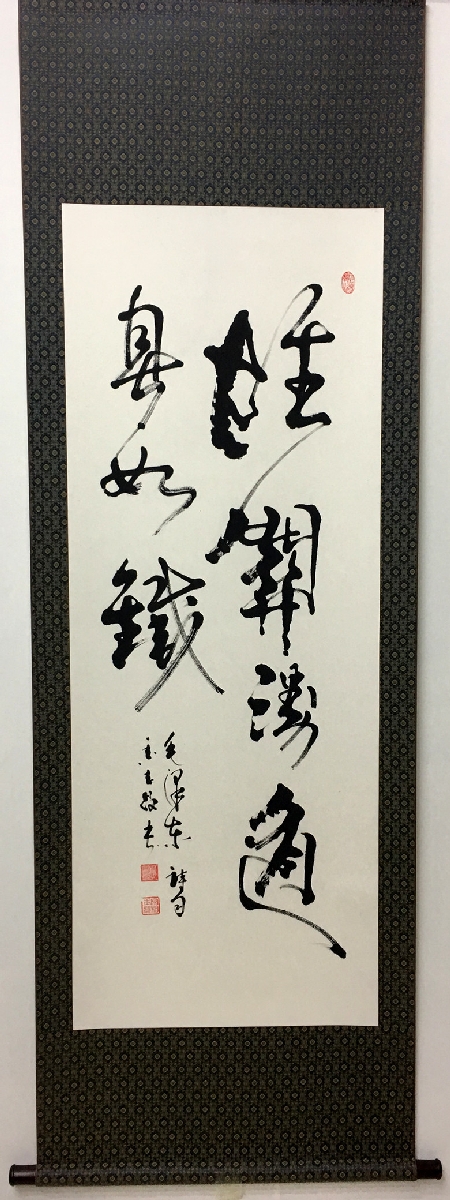 雄關漫道
真如鐵
毛澤東詩句
書